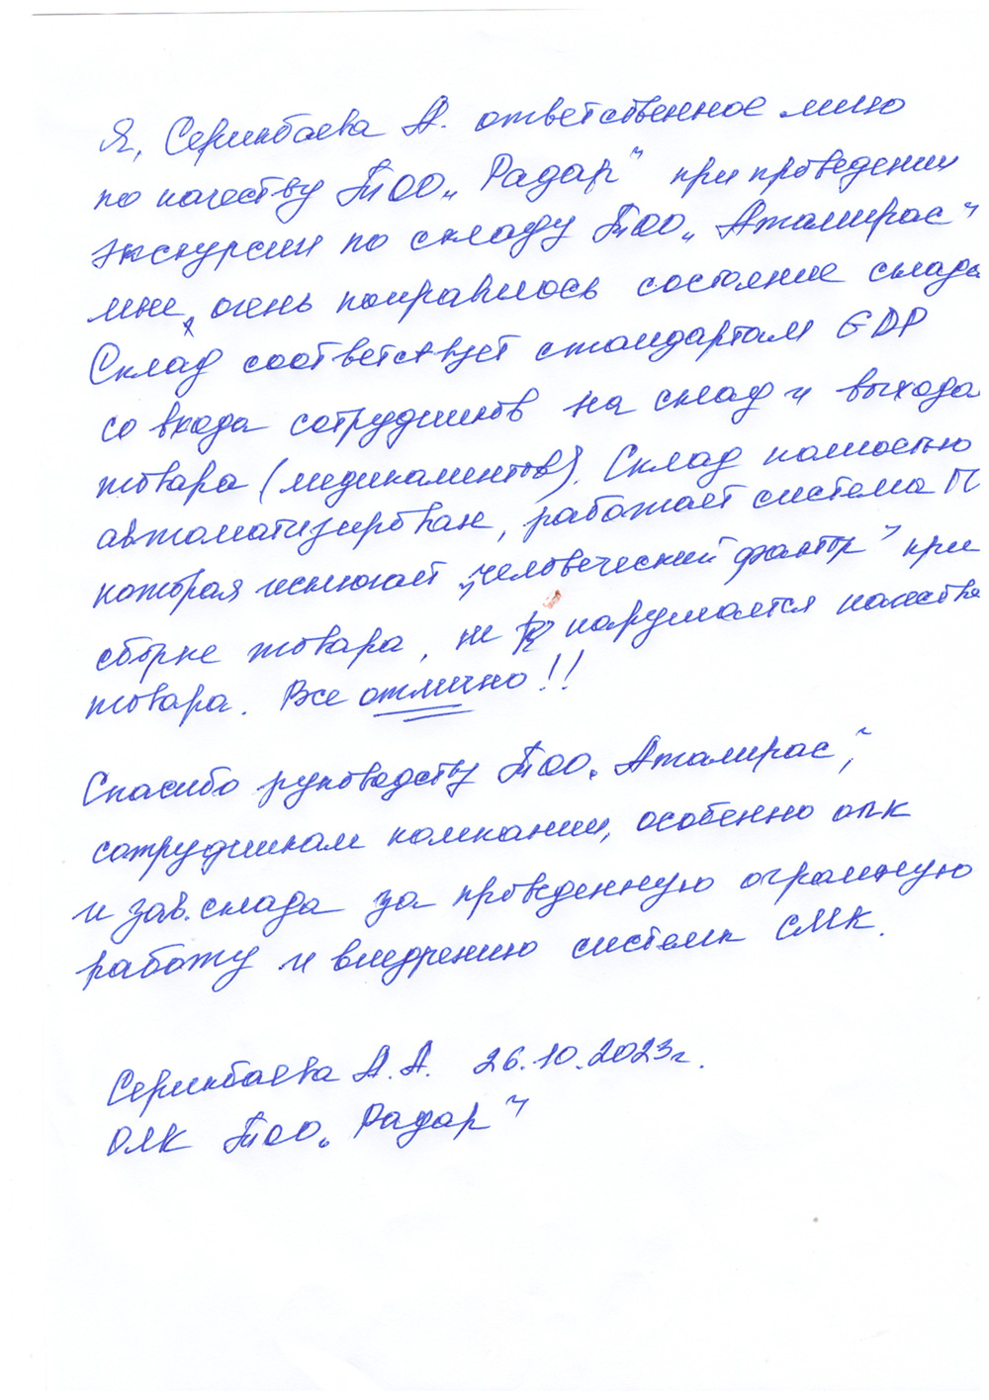 Я, Серикбаева А. ответственное лицо
по качеству ТОО „Радар" при проведении
экскурсии по складу ТОО „Аталирас"
мне очень понравилось состояние склада
Склад соответствует стандартам GDP
со входа сотрудников на склад и выхода
товара (медикаментов). Склад полностью
автоматизирован, работает система П
которая исключает „человеческий фактор" при
сборке товара, не нарушается качества
товара. Все отлично!!
Спасибо руководству ТОО „Аталирас",
сотрудникам компании, особенно олк
и зав. склада за проведенную огромную
работу и внедрению системы СМК.
Серикбаева А.А. 26.10.2023г.
ОЛК ТОО „Радар"